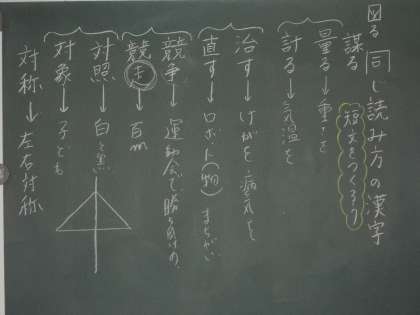 同じ読み方の漢字
図る
謀る
短文をつくろう
量る→重さを
計る→気温を
治す→けがを、病気を
直す→ロボット(物)まちがい
競争→運動会で、勝ち負けの、
競走→百m
対照→白と黒
対象→子ども
対称→左右対称